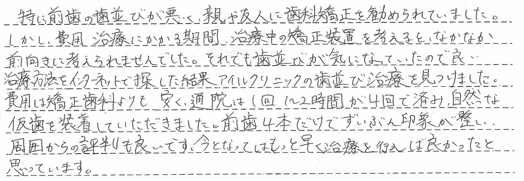 特に前歯の歯並びが悪く、親や友人に歯科矯正を勧められていました。
しかし、費用、治療にかかる期間、治療中の矯正装置を考えると、なかなか
前向きに考えられませんでした。それでも歯並びが気になっていたので良い
治療方法をインターネットで探した結果アイルクリニックの歯並び治療を見つけました。
費用は矯正歯科よりも安く、通院は1回1~2時間が4回で済み、自然な
仮歯を装着していただきました。前歯4本だけでずいぶん印象が整い、
周囲からの評判も良いです。今となってはもっと早く治療を行えば良かったと
思っています。